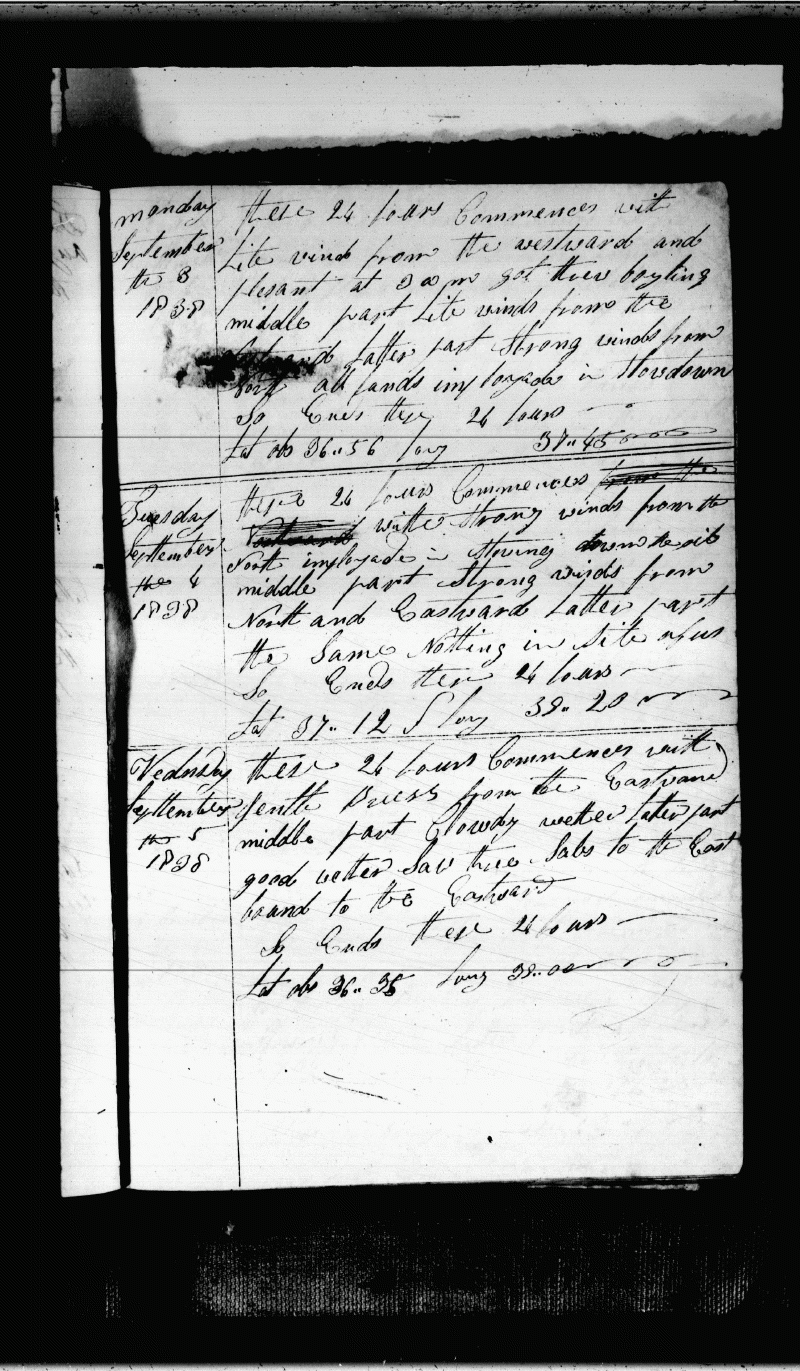 monday
September
the 3
1838
these 24 hours Commences with
Lite vinds from the westward and
plesant at 3 pm got threw boyling
middle part Lite vinds from the
Latter part Strong vinds from
North all hands imployade in Stowdown
So Ends these 24 hours
Lat obs 36"56 long 37"45
Tuesday
September
the 4
1838
these 24 hours Commences from the
Vestward withe Strong vinds from the
North imployade in Stowing down the oil
middle part Strong vinds from
North and Eastward Latter part
the Same Notting in Site of us
So Ends these 24 hours
Lat 37"12 long 38"20
Vednsday
September
the 5
1838
these 24 hours Commences with
Gentle Breess from the Eastvard
middle part Clowdy wetter later part
good vetter Sav three Sals to the East
baund to the Eastward
So Ends these 24 hours
Lat obs 36"35 long 38"00